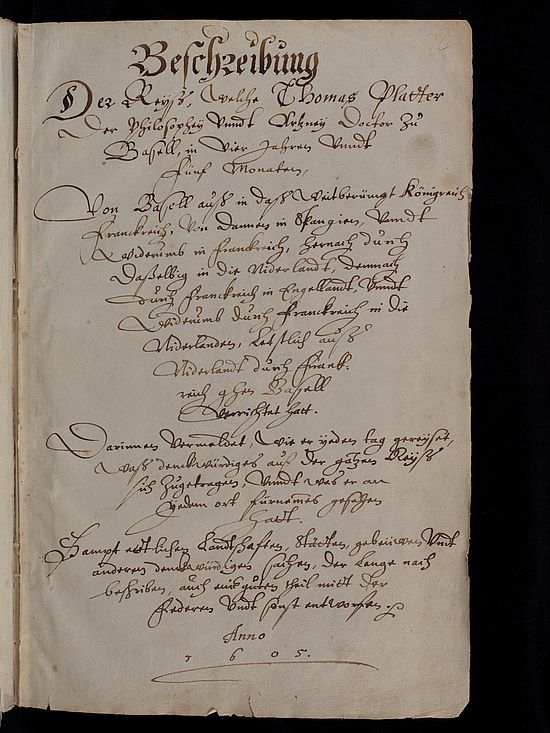 Beschreibung
Der Reyß, Welche Thomas Platter
Der Philosophey Vnndt Artzney Doctor Zu
Basell, in Vier Jahren Vnndt
Fünf Monaten,
Von Basell auß in daß Weitberümpt Königreich
Franckreich, Von Dannen in Spangien, Vnndt
Widerumb in Franckreich, Hernach durch
Daßelbig in die Niderlandt, demnach
Durch Franckreich in Engellandt, Vnndt
Widerumb durch Franckreich in die
Niderlanden, Letstlich auß
Niderlandt durch Franck-
reich ghen Basell
Verrichtet hatt.
Darinnen Vermeldet Wie er yeden tag gereyset,
Waß denckwürdiges auf der gantzen Reyß
sich Zugetragen, Vnndt Was er an
Jedem ort fürnemes gesehen
hatt.
Sampt ettlichen Landtschaften, Stätten, gebeüwen Vndt
anderen denckwürdigen sachen, der Lenge nach
beschriben, auch eins guten theil mitt der
Federen Vndt sonst entworfen.
Anno
1605.